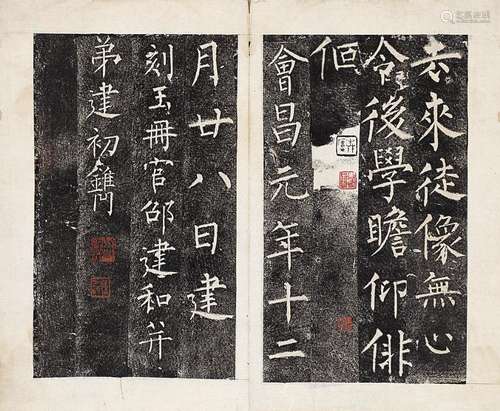 去來徒像無心
令後學瞻仰俳
佪
會昌元年十二
月廿八日建
刻玉冊官邵建和并
弟建初鐫